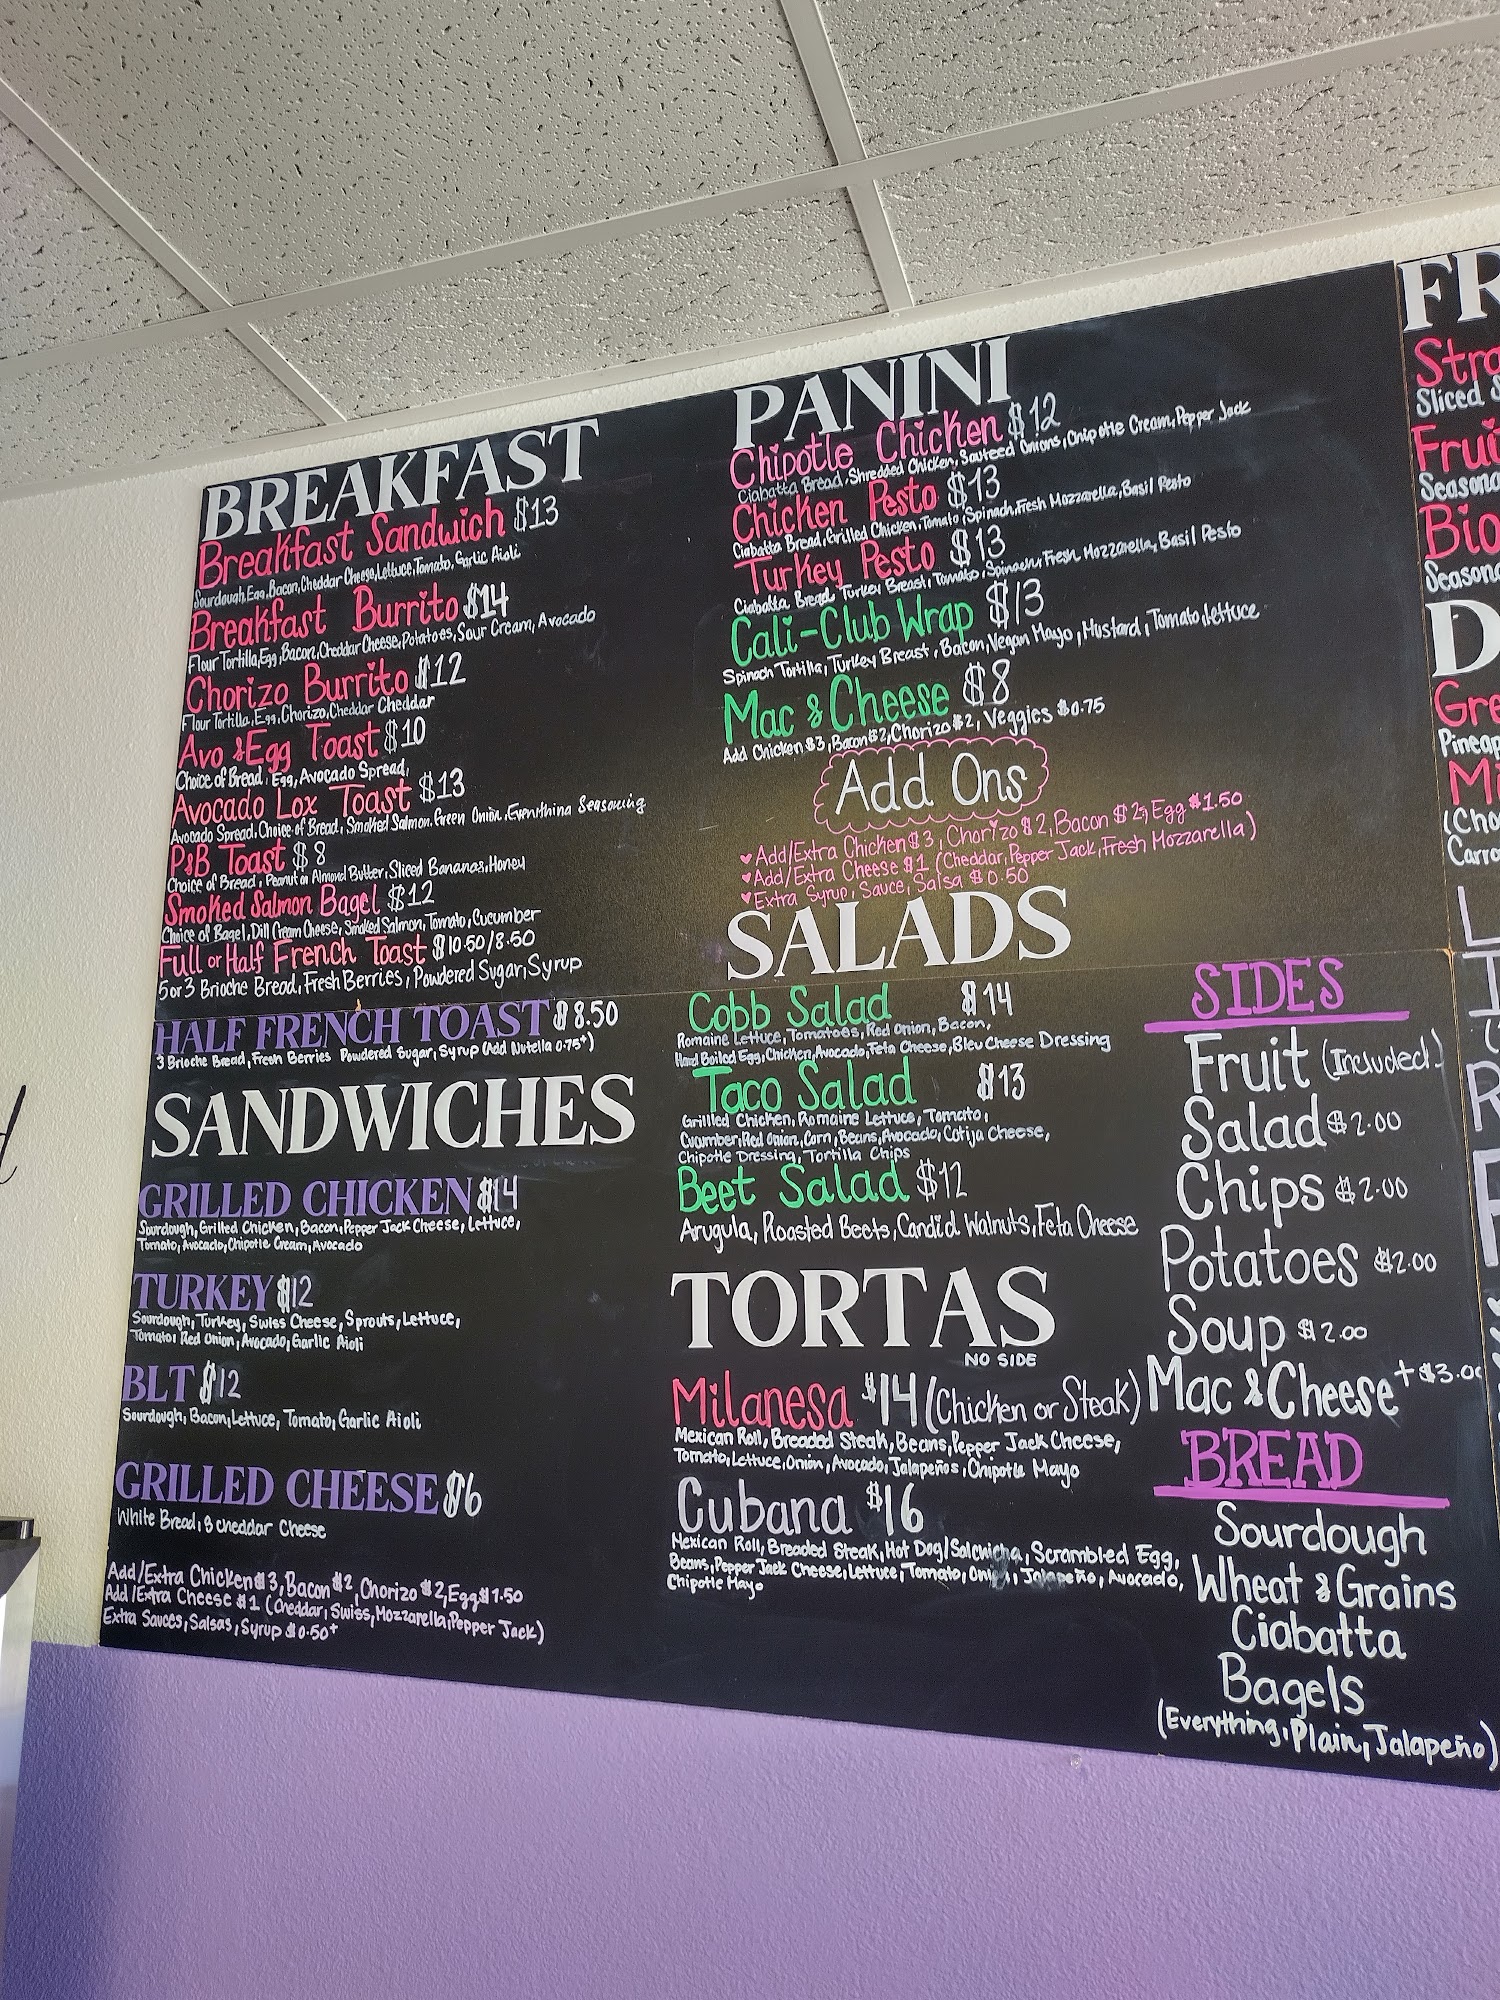 BREAKFAST
Breakfast Sandwich $13
Sourdough, Egg, Bacon, Cheddar Cheese, Lettuce, Tomato, Garlic Aioli
Breakfast Burrito $14
Flour Tortilla, Egg, Bacon, Cheddar Cheese, Potatoes, Sour Cream, Avocado
Chorizo Burrito $12
Flour Tortilla, Egg, Chorizo, Cheddar Cheddar
Avo & Egg Toast $10
Choice of Bread, Egg, Avocado Spread,
Avocado Lox Toast $13
Avocado Spread, Choice of Bread, Smoked Salmon, Green Onion, Everything Seasoning
P&B Toast $8
Choice of Bread, Peanut or Almond Butter, Sliced Bananas, Honey
Smoked Salmon Bagel $12
Choice of Bagel, Dill Cream Cheese, Smoked Salmon, Tomato, Cucumber
Full or Half French Toast $10.50/8.50
5 or 3 Brioche Bread, Fresh Berries, Powdered Sugar, Syrup
HALF FRENCH TOAST $8.50
3 Brioche Bread, Fresh Berries Powdered Sugar, Syrup (Add Nutella 0.75+)
SANDWICHES
GRILLED CHICKEN $14
Sourdough, Grilled Chicken, Bacon, Pepper Jack Cheese, Lettuce,
Tomato, Avocado, Chipotle Cream, Avocado
TURKEY $12
Sourdough, Turkey, Swiss Cheese, Sprouts, Lettuce,
Tomato, Red Onion, Avocado, Garlic Aioli
BLT $12
Sourdough, Bacon, Lettuce, Tomato, Garlic Aioli
GRILLED CHEESE $6
White Bread, & cheddar Cheese
Add/Extra Chicken $3, Bacon $2, Chorizo $2, Egg $1.50
Add/Extra Cheese $1 (Cheddar, Swiss, Mozzarella, Pepper Jack)
Extra Sauces, Salsas, Syrup $0.50+
PANINI
Chipotle Chicken $12
Ciabatta Bread, Shredded Chicken, Sauteed Onions, Chipotle Cream, Pepper Jack
Chicken Pesto $13
Ciabatta Bread, Grilled Chicken, Tomato, Spinach, Fresh Mozzarella, Basil Pesto
Turkey Pesto $13
Ciabatta Bread, Turkey Breast, Tomato, Spinach, Fresh Mozzarella, Basil Pesto
Cali-Club Wrap $13
Spinach Tortilla, Turkey Breast, Bacon, Vegan Mayo, Mustard, Tomato, lettuce
Mac & Cheese $8
Add Chicken $3, Bacon $2, Chorizo $2, Veggies $0.75
Add Ons
♥Add/Extra Chicken $3, Chorizo $2, Bacon $2, Egg $1.50
♥Add/Extra Cheese $1 (Cheddar, Pepper Jack, Fresh Mozzarella)
♥Extra Syrup, Sauce, Salsa $0.50
SALADS
Cobb Salad $14
Romaine Lettuce, Tomatoes, Red Onion, Bacon,
Hard Boiled Egg, Chicken, Avocado, Feta Cheese, Bleu Cheese Dressing
Taco Salad $13
Grillled Chicken, Romaine Lettuce, Tomato,
Cucumber, Red Onion, Corn, Beans, Avocado, Cotija Cheese,
Chipotle Dressing, Tortilla Chips
Beet Salad $12
Arugula, Roasted Beets, Candid Walnuts, Feta Cheese
TORTAS
NO SIDE
Milanesa $14 (Chicken or Steak)
Mexican Roll, Breaded Steak, Beans, Pepper Jack Cheese,
Tomato, Lettuce, Onion, Avocado, Jalapeños, Chipotle Mayo
Cubana $16
Mexican Roll, Breaded Steak, Hot Dog/Salchicha, Scrambled Egg,
Beans, Pepper Jack Cheese, Lettuce, Tomato, Onion, Jalapeño, Avocado,
Chipotle Mayo
SIDES
Fruit (Included)
Salad $2.00
Chips $2.00
Potatoes $2.00
Soup $2.00
Mac & Cheese +$3.00
BREAD
Sourdough
Wheat & Grains
Ciabatta
Bagels
(Everything, Plain, Jalapeño)
FR
Stra
Sliced S
Frui
Seasona
Bio
Seasona
D
Gre
Pineap
Mi
(Cho
Carro